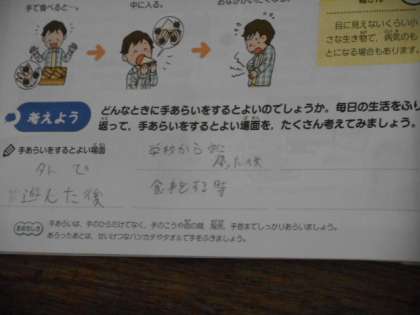 手で食べると…
中に入る。
おなかがいたくなる。
目に見えないくらい小
さな生き物で，病気のも
とになる場合もあります。
考えよう
どんなときに手あらいをするとよいのでしょうか。毎日の生活をふり
返って，手あらいをするとよい場面を，たくさん考えてみましょう。
手あらいをするとよい場面
外で
遊んだ後
学校から家に
帰った後
食事をする時
手あらいは，手のひらだけでなく，手のこうや指の間，指先，手首までしっかりあらいましょう。
あらったあとは，せいけつなハンカチやタオルで手をふきましょう。